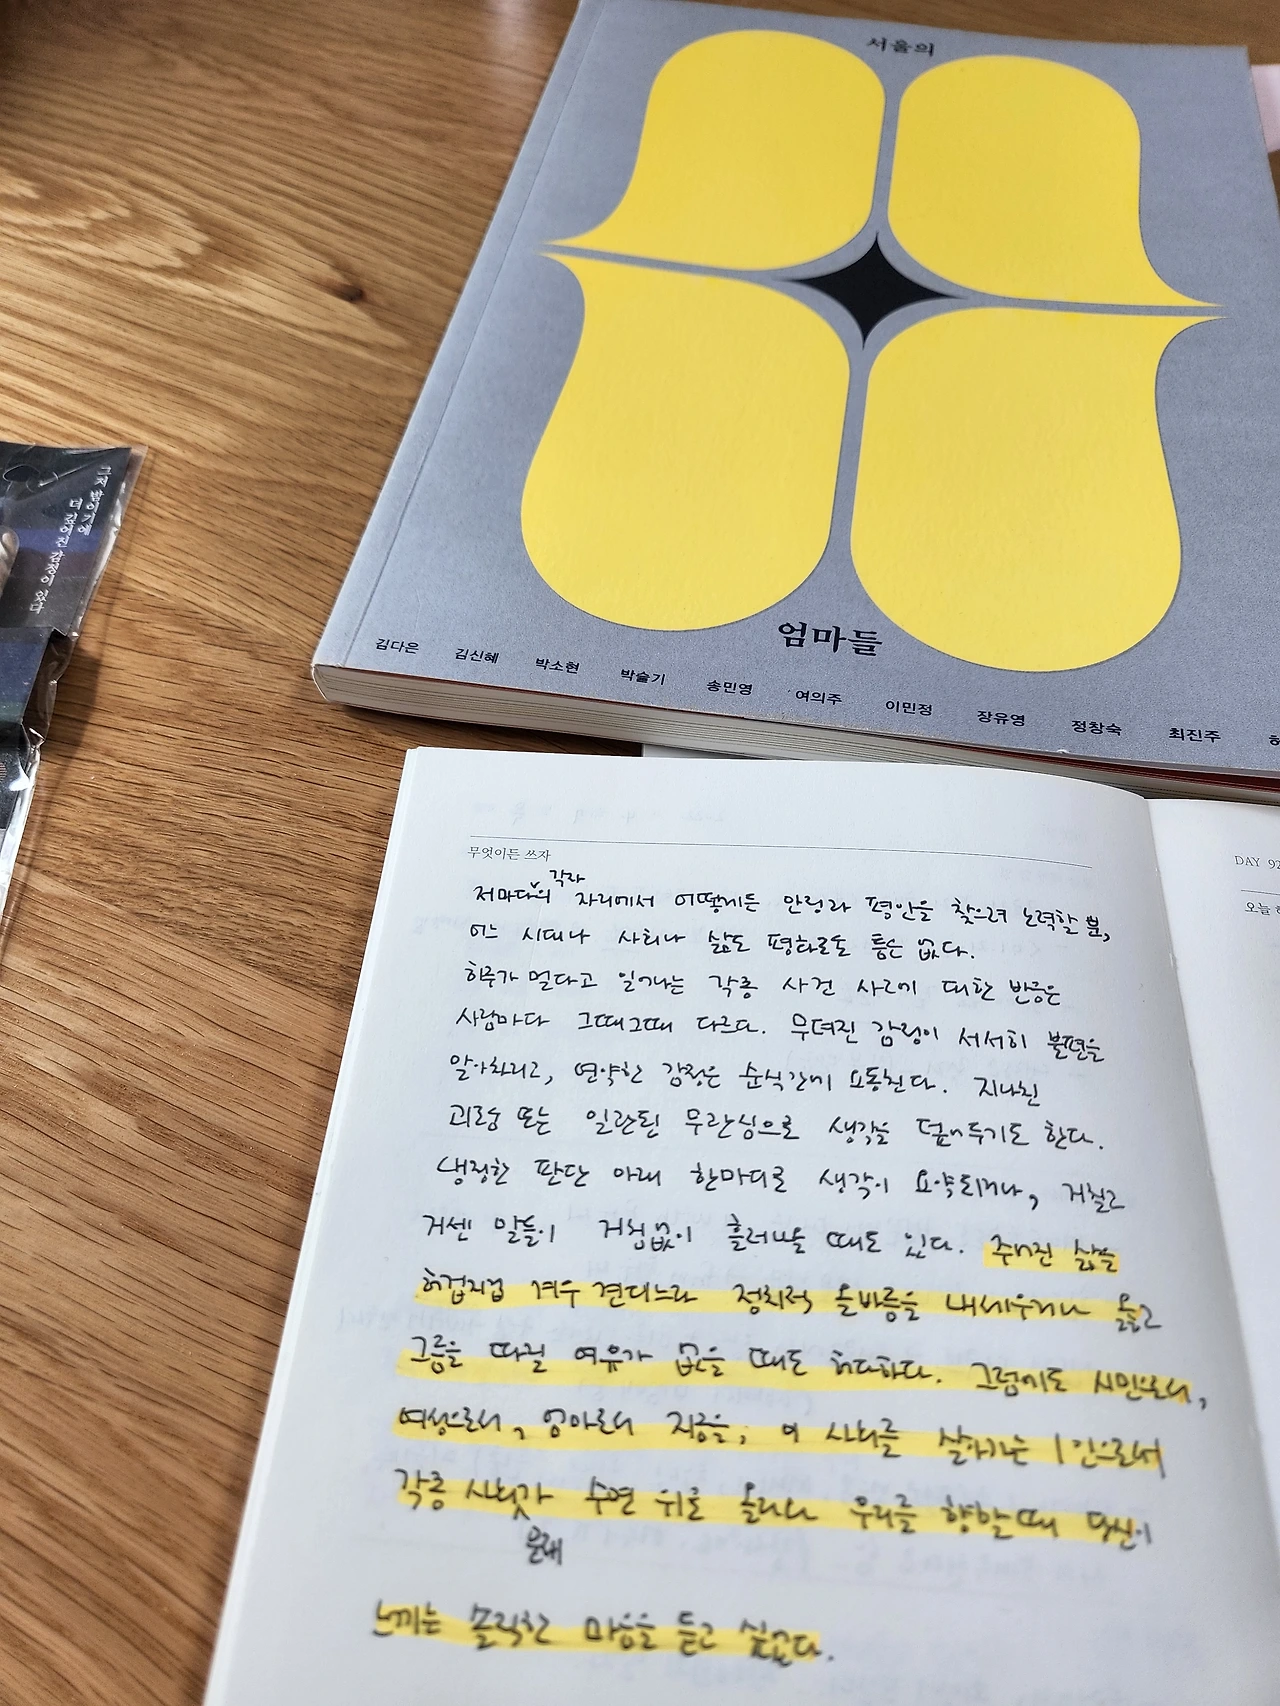 서울의
엄마들
김다은 김신혜 박소현 박슬기 송민영 여의주 이민정 장유영 정창숙 최진주 허
그저 밤이기에
더 깊어진 감정이 있다
무엇이든 쓰자
각자
저마다의 자리에서 어떻게든 안정과 평안을 찾으려 노력할 뿐,
어느 시대나 사회나 삶도 평화로울 틈은 없다.
하루가 멀다고 일어나는 각종 사건 사고에 대한 반응은
사람마다 그때그때 다르다. 무뎌진 감정이 서서히 불편을
알아차리고, 연약한 감정은 순식간에 요동친다. 지나친
괴로움 또는 일관된 무관심으로 생각을 덮어두기도 한다.
냉정한 판단 아래 한마디로 생각이 요약되거나, 거칠고
거센 말들이 거침없이 흘러나올 때도 있다. 주어진 삶을
허겁지겁 겨우 견디느라 정치적 올바름을 내세우거나 옳고
그름을 따질 여유가 없을 때도 허다하다. 그럼에도 시민으로서,
여성으로서, 엄마로서 지금을, 이 사회를 살아가는 1인으로서
각종 사회가 수면 위로 올라와 우리를 향할 때 당신이
문제
느끼는 솔직한 마음을 듣고 싶었다.
DAY 92
오늘